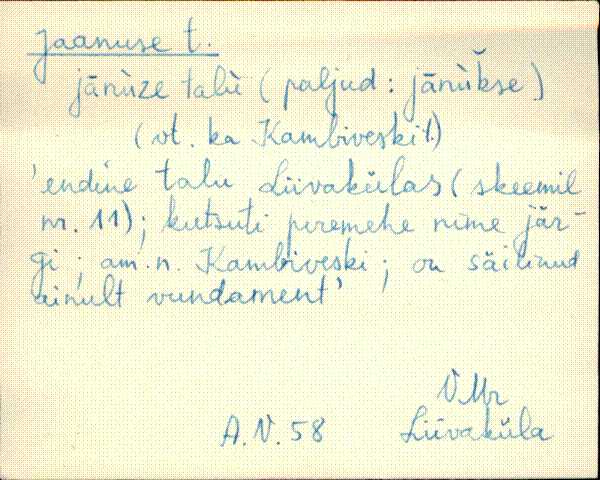 Jaanuse t.
jānùze talù (paljud: jānùkse)
(vt. ka Kambiveski t.)
'endine talu Liivakülas (skeemil
nr. 11); kutsuti peremehe nime jär-
gi; am. n. Kambiveski; on säilinud
ainult vundament'
V.Mr
A.V. 58 Liivaküla